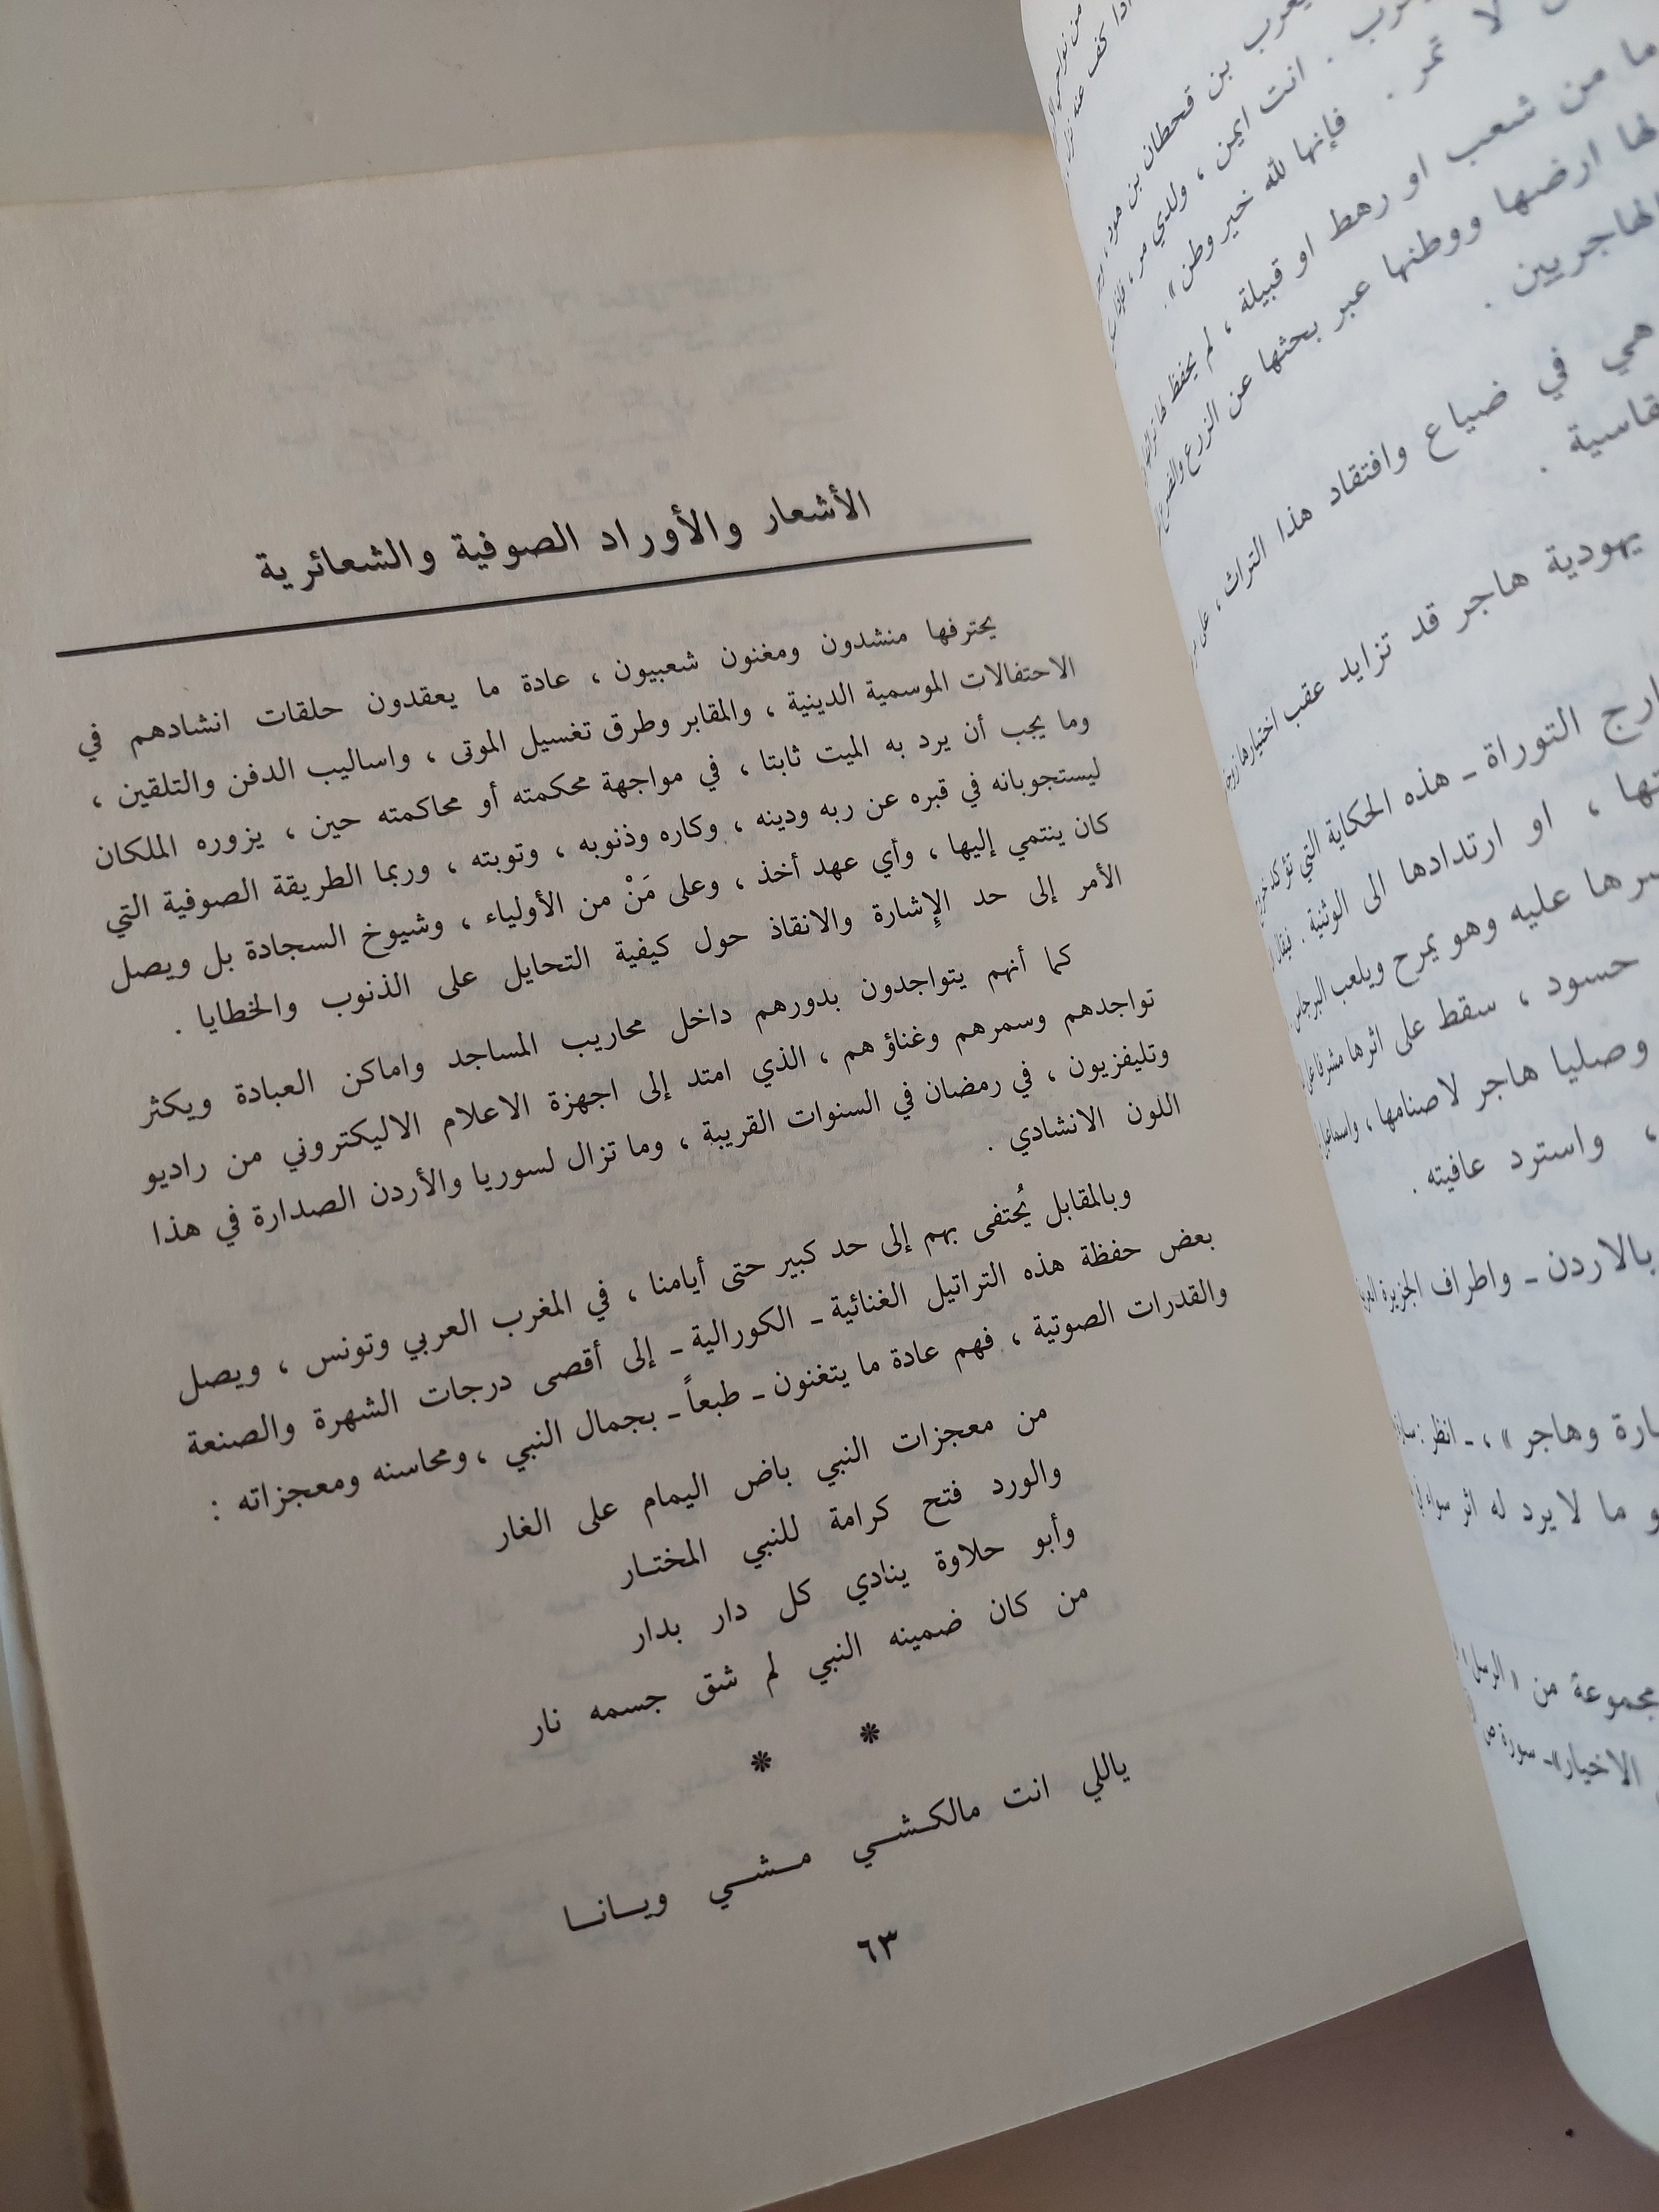 يعرب بن قحطان بن هود
انت ايمن ، ولدي مر
لا تمر . فإنها لله خير وطن» .
ما من شعب او رهط او قبيلة ، لم يحفظ لها
لها ارضها ووطنها عبر بحثها عن الزرع والضرع
الهاجريين .
هي في ضياع وافتقاد هذا التراث ، على
قاسية .
يهودية هاجر قد تزايد عقب اختيارها
التوراة ـ هذه الحكاية التي تؤكد
او ارتدادها الى الوثنية . فيقال
عليه وهو يمرح ويلعب البرجاس
حسود ، سقط على اثرها مشرفا
وصليا هاجر لاصنامها ،
، واسترد عافيته .
بالاردن ـ واطراف الجزيرة
وهاجر » ، ـ انظر :
ما لا يرد له اثر سواء
مجموعة من « الرسل
الاخيار» ـ سورة ص
الأشعار والأوراد الصوفية والشعائرية
يحترفها منشدون ومغنون شعبيون ، عادة ما يعقدون حلقات انشادهم في
الاحتفالات الموسمية الدينية ، والمقابر وطرق تغسيل الموتى ، واساليب الدفن والتلقين ،
وما يجب أن يرد به الميت ثابتا ، في مواجهة محكمته أو محاكمته حين ، يزوره الملكان
ليستجوبانه في قبره عن ربه ودينه ، وكاره وذنوبه ، وتوبته ، وربما الطريقة الصوفية التي
كان ينتمي إليها ، وأي عهد أخذ ، وعلى مَنْ من الأولياء ، وشيوخ السجادة بل ويصل
الأمر إلى حد الإشارة والانقاذ حول كيفية التحايل على الذنوب والخطايا .
كما أنهم يتواجدون بدورهم داخل محاريب المساجد واماكن العبادة ويكثر
تواجدهم وسمرهم وغناؤهم ، الذي امتد إلى اجهزة الاعلام الاليكتروني من راديو
وتليفزيون ، في رمضان في السنوات القريبة ، وما تزال لسوريا والأردن الصدارة في هذا
اللون الانشادي .
وبالمقابل يُحتفى بهم إلى حد كبير حتى أيامنا ، في المغرب العربي وتونس ، ويصل
بعض حفظة هذه التراتيل الغنائية ـ الكورالية ـ إلى أقصى درجات الشهرة والصنعة
والقدرات الصوتية ، فهم عادة ما يتغنون ـ طبعاً ـ بجمال النبي ، ومحاسنه ومعجزاته :
من معجزات النبي باض اليمام على الغار
والورد فتح كرامة للنبي المختـار
وأبو حلاوة ينادي كل دار بدار
من كان ضمينه النبي لم شق جسمه نار
* *
ياللي انت مالكـشـي مـشـي ويـانـا
٦٣